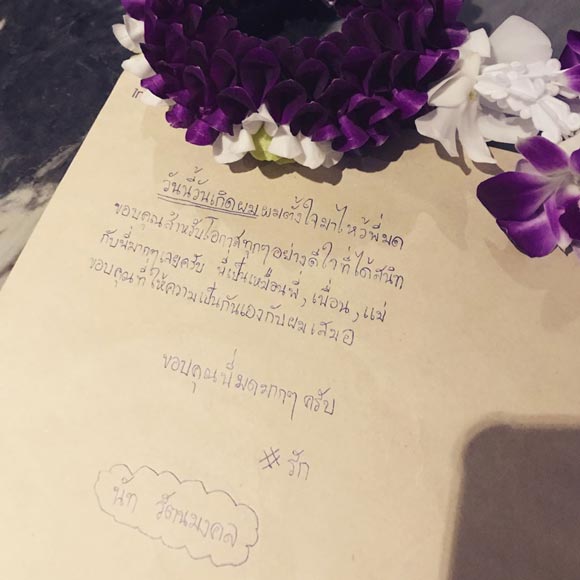 วันนี้วันเกิดผม ผมตั้งใจมาไหว้พี่มด
ขอบคุณสำหรับโอกาสทุกๆอย่างดีใจที่ได้สนิท
กับพี่มากๆเลยครับ พี่เป็นเหมือนพี่, เพื่อน, แม่
ขอบคุณที่ให้ความเป็นกันเองกับผมเสมอ
ขอบคุณพี่มดมากๆ ครับ
# รัก
นัท รัตนมงคล